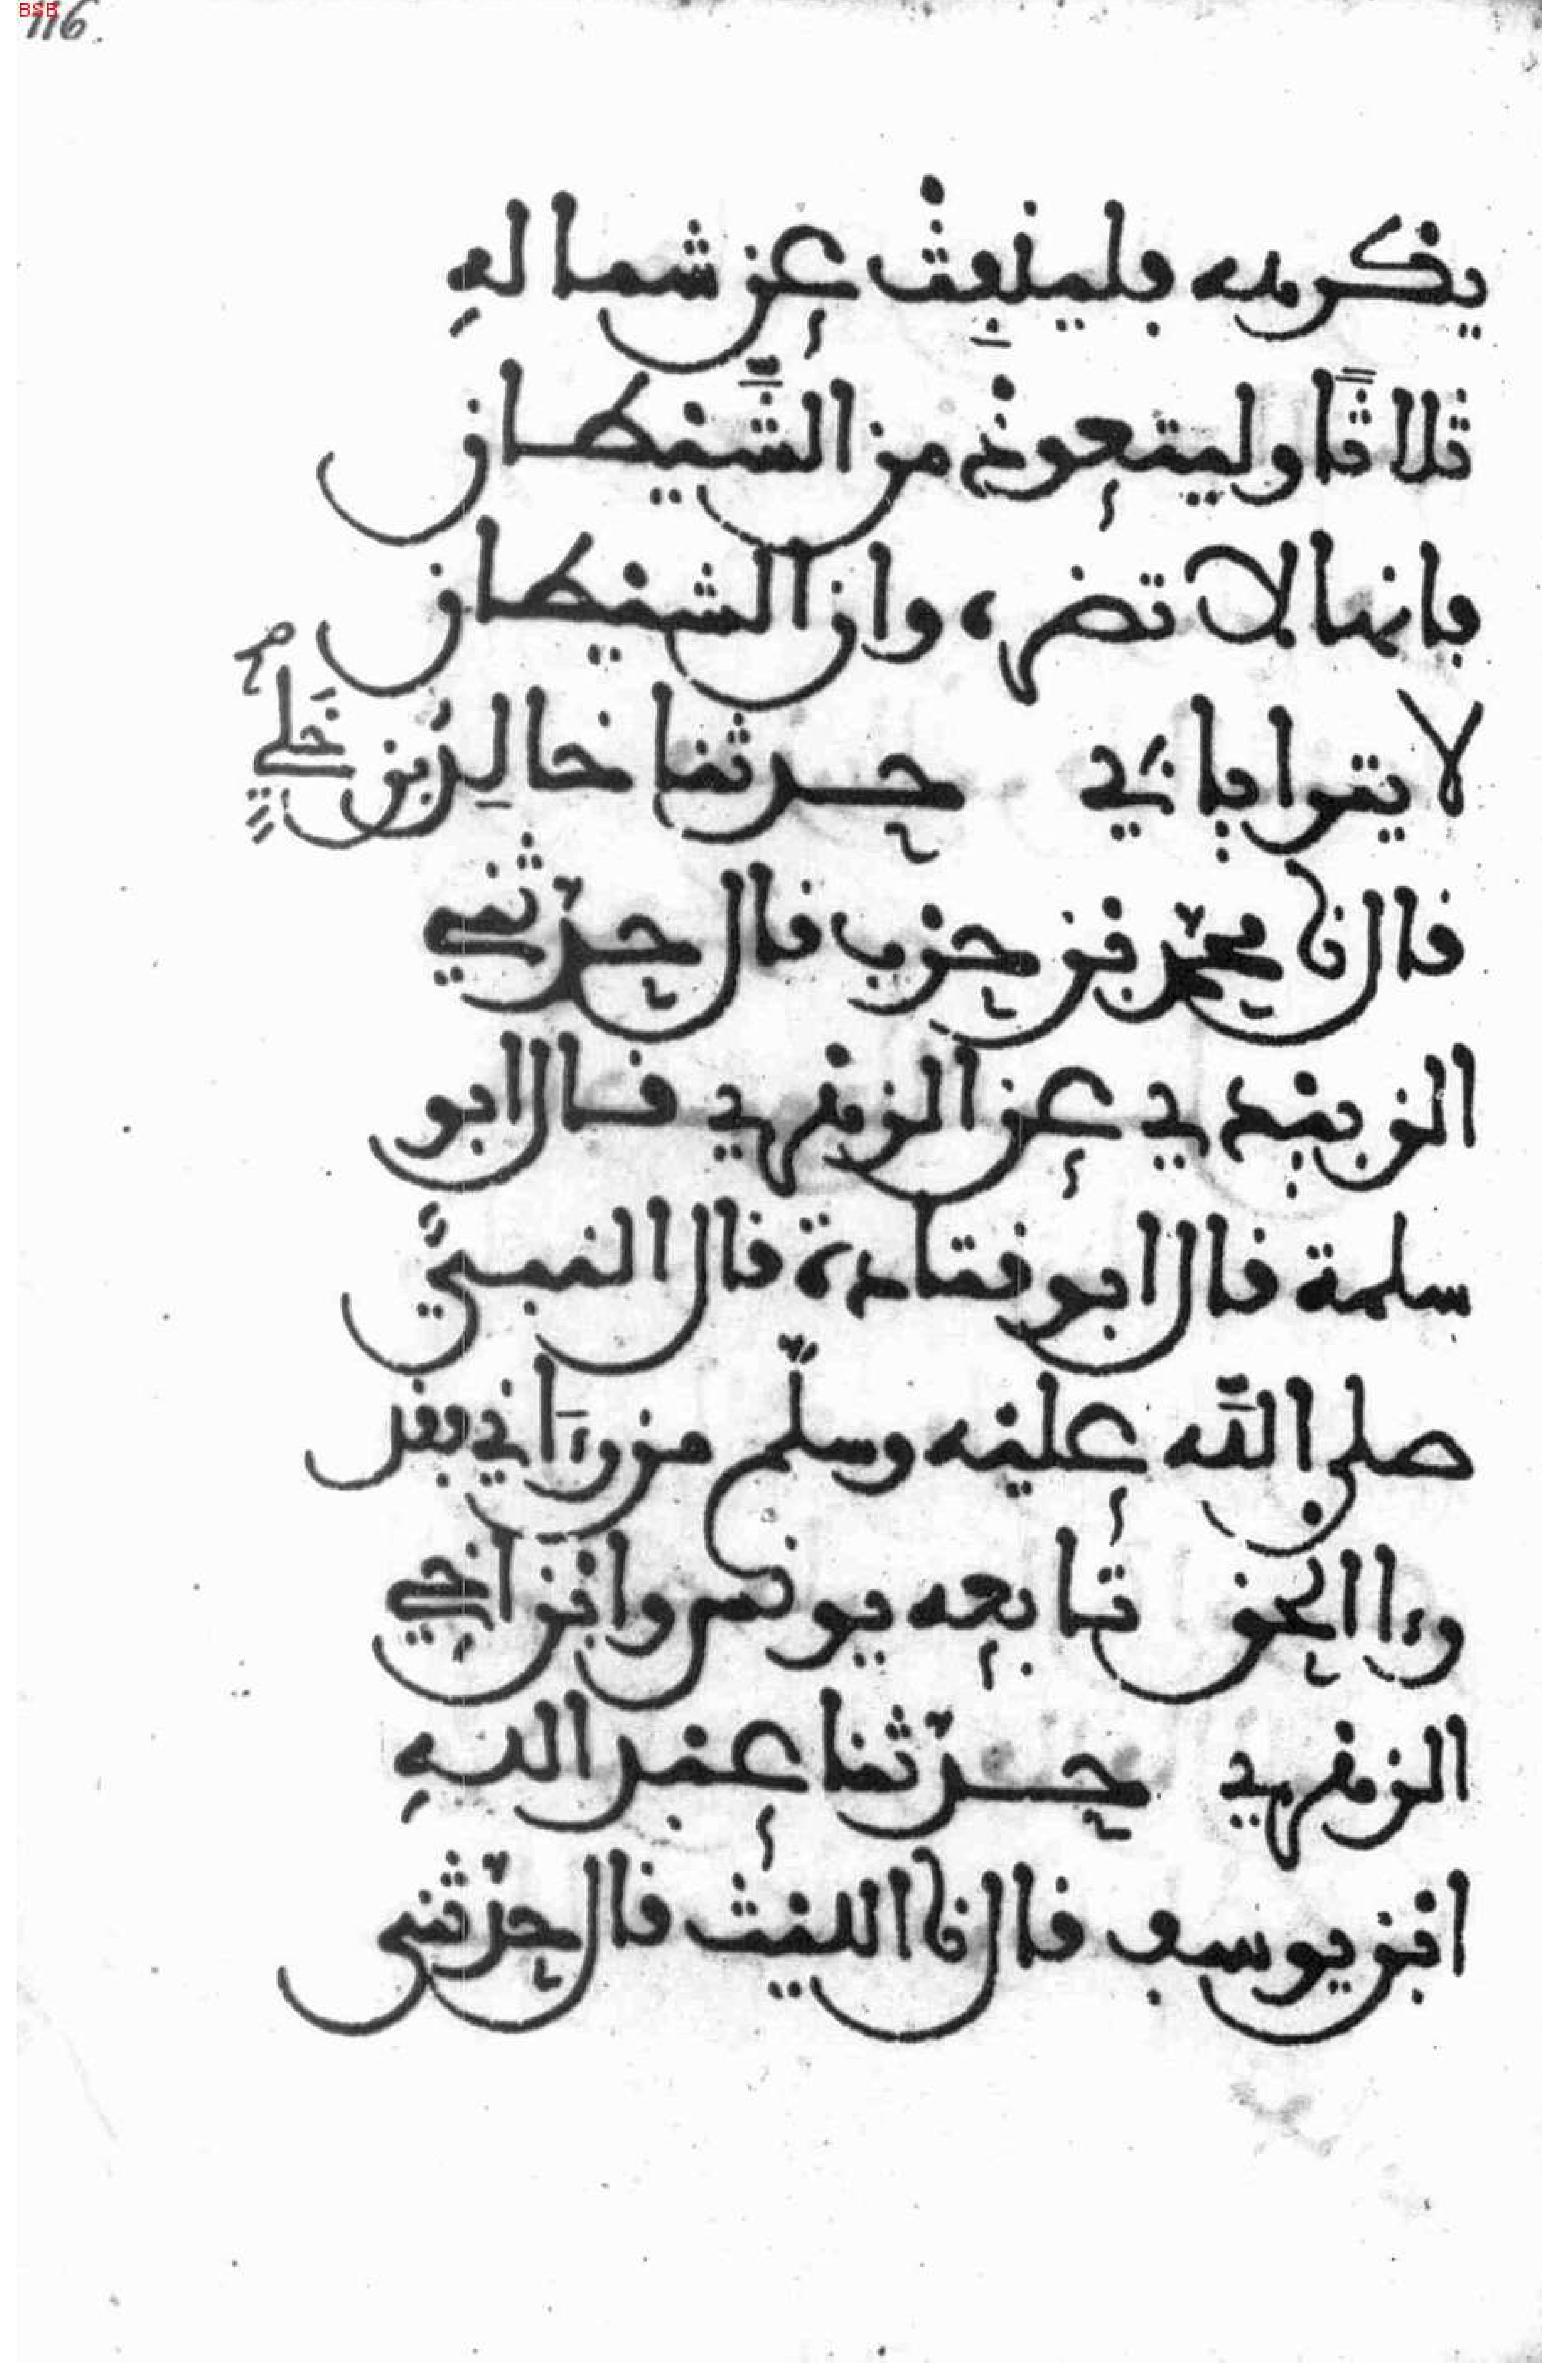 116.
BSB
يكرهه فلينفث عن شماله
ثلاثا وليتعوذ من الشيطان
فانها لا تضره وان الشيطان
لا يتراءاني حدثنا خالد بن خلي
قال نا محمد بن حرب قال حدثني
الزبيدي عن الزهري قال ابو
سلمة قال ابو قتادة قال النبي
صلى الله عليه وسلم من رءاني فقد
رءا الحق تابعه يونس وابن اخي
الزهري حدثنا عبد الله
ابن يوسف قال نا الليث قال حدثني